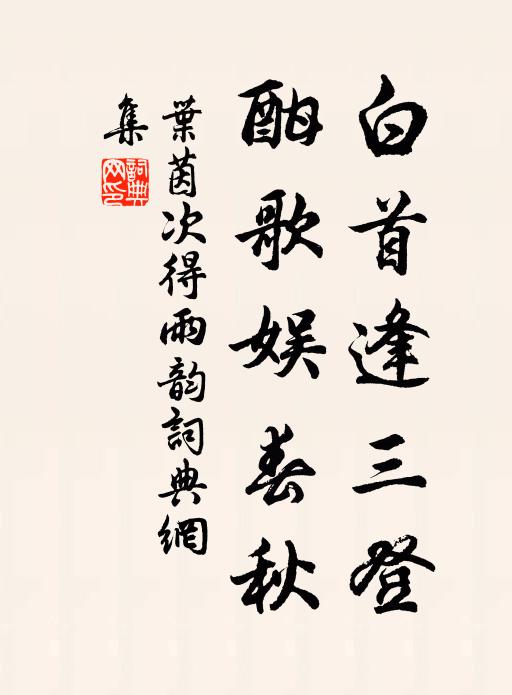 白首逢三登
酣歌娱春秋
葉茵次得雨韵詞典網
集
詞典網印